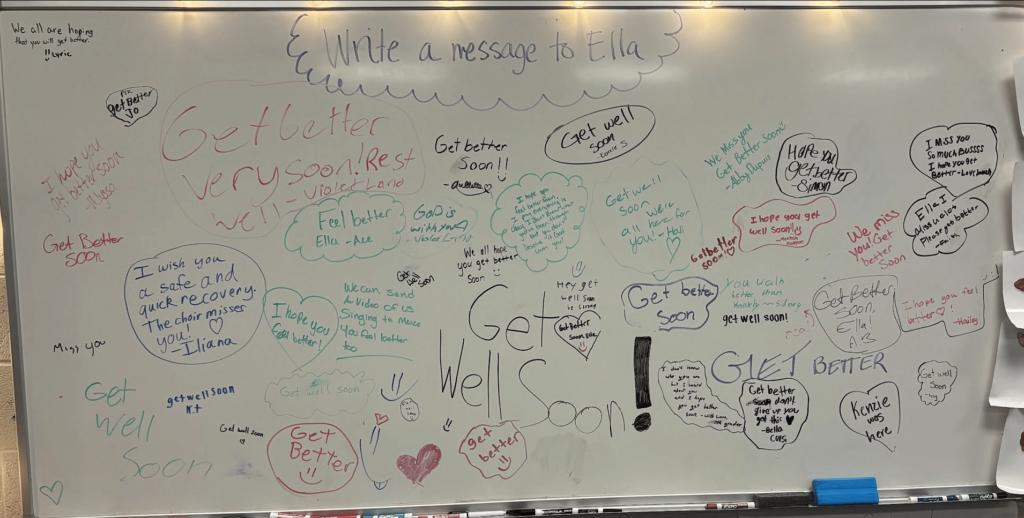 Write a message to Ella
We all are hoping
that you will get better.
Lyric
get Better
Jo
I hope you
get better soon
Get Better
Soon
Get better
very soon! Rest
well - Violet Land
Get better
Soon!!
Get well
soon
We Miss you
Get Better Soon
Hope you
get better
-Simon
I MISS YOU
So MUCH BUSSSS
I hope you get
Better -
Feel better
Ella - Ace
GOD is
with you
- Violet
I hope you
feel better soon,
Get well
Soon
we're
all here for
you!
I hope you get
well soon!
Get better
soon
We miss
you! Get
better
Soon
Ella I
miss u a lot
Please get better
We all hope
you get better
Soon
I wish you
a safe and
quick recovery.
The choir misser
you!
-Iliana
I hope
you
feel better!
We can send
A video of us
Singing to Make
You feel better
too
get well
Soon
Hey get
well Soon
Get Better
Soon Ella
Get
Well Soon!
Get better
Soon
You walk
better than
get well soon!
Get Better
Soon,
Ella!
A.B
I hope you feel
better
-Hailey
Miss you
Get
Well
Soon
get well soon
K.t
Get well soon
Get well soon
Get
Better
get
better
I don't know
who you are
but I heard
about you
and I hope
you get better
soon
GIET BETTER
Get better
soon don't
give up you
got this
-Bella
Kenzie
was
here
Get well
Soon